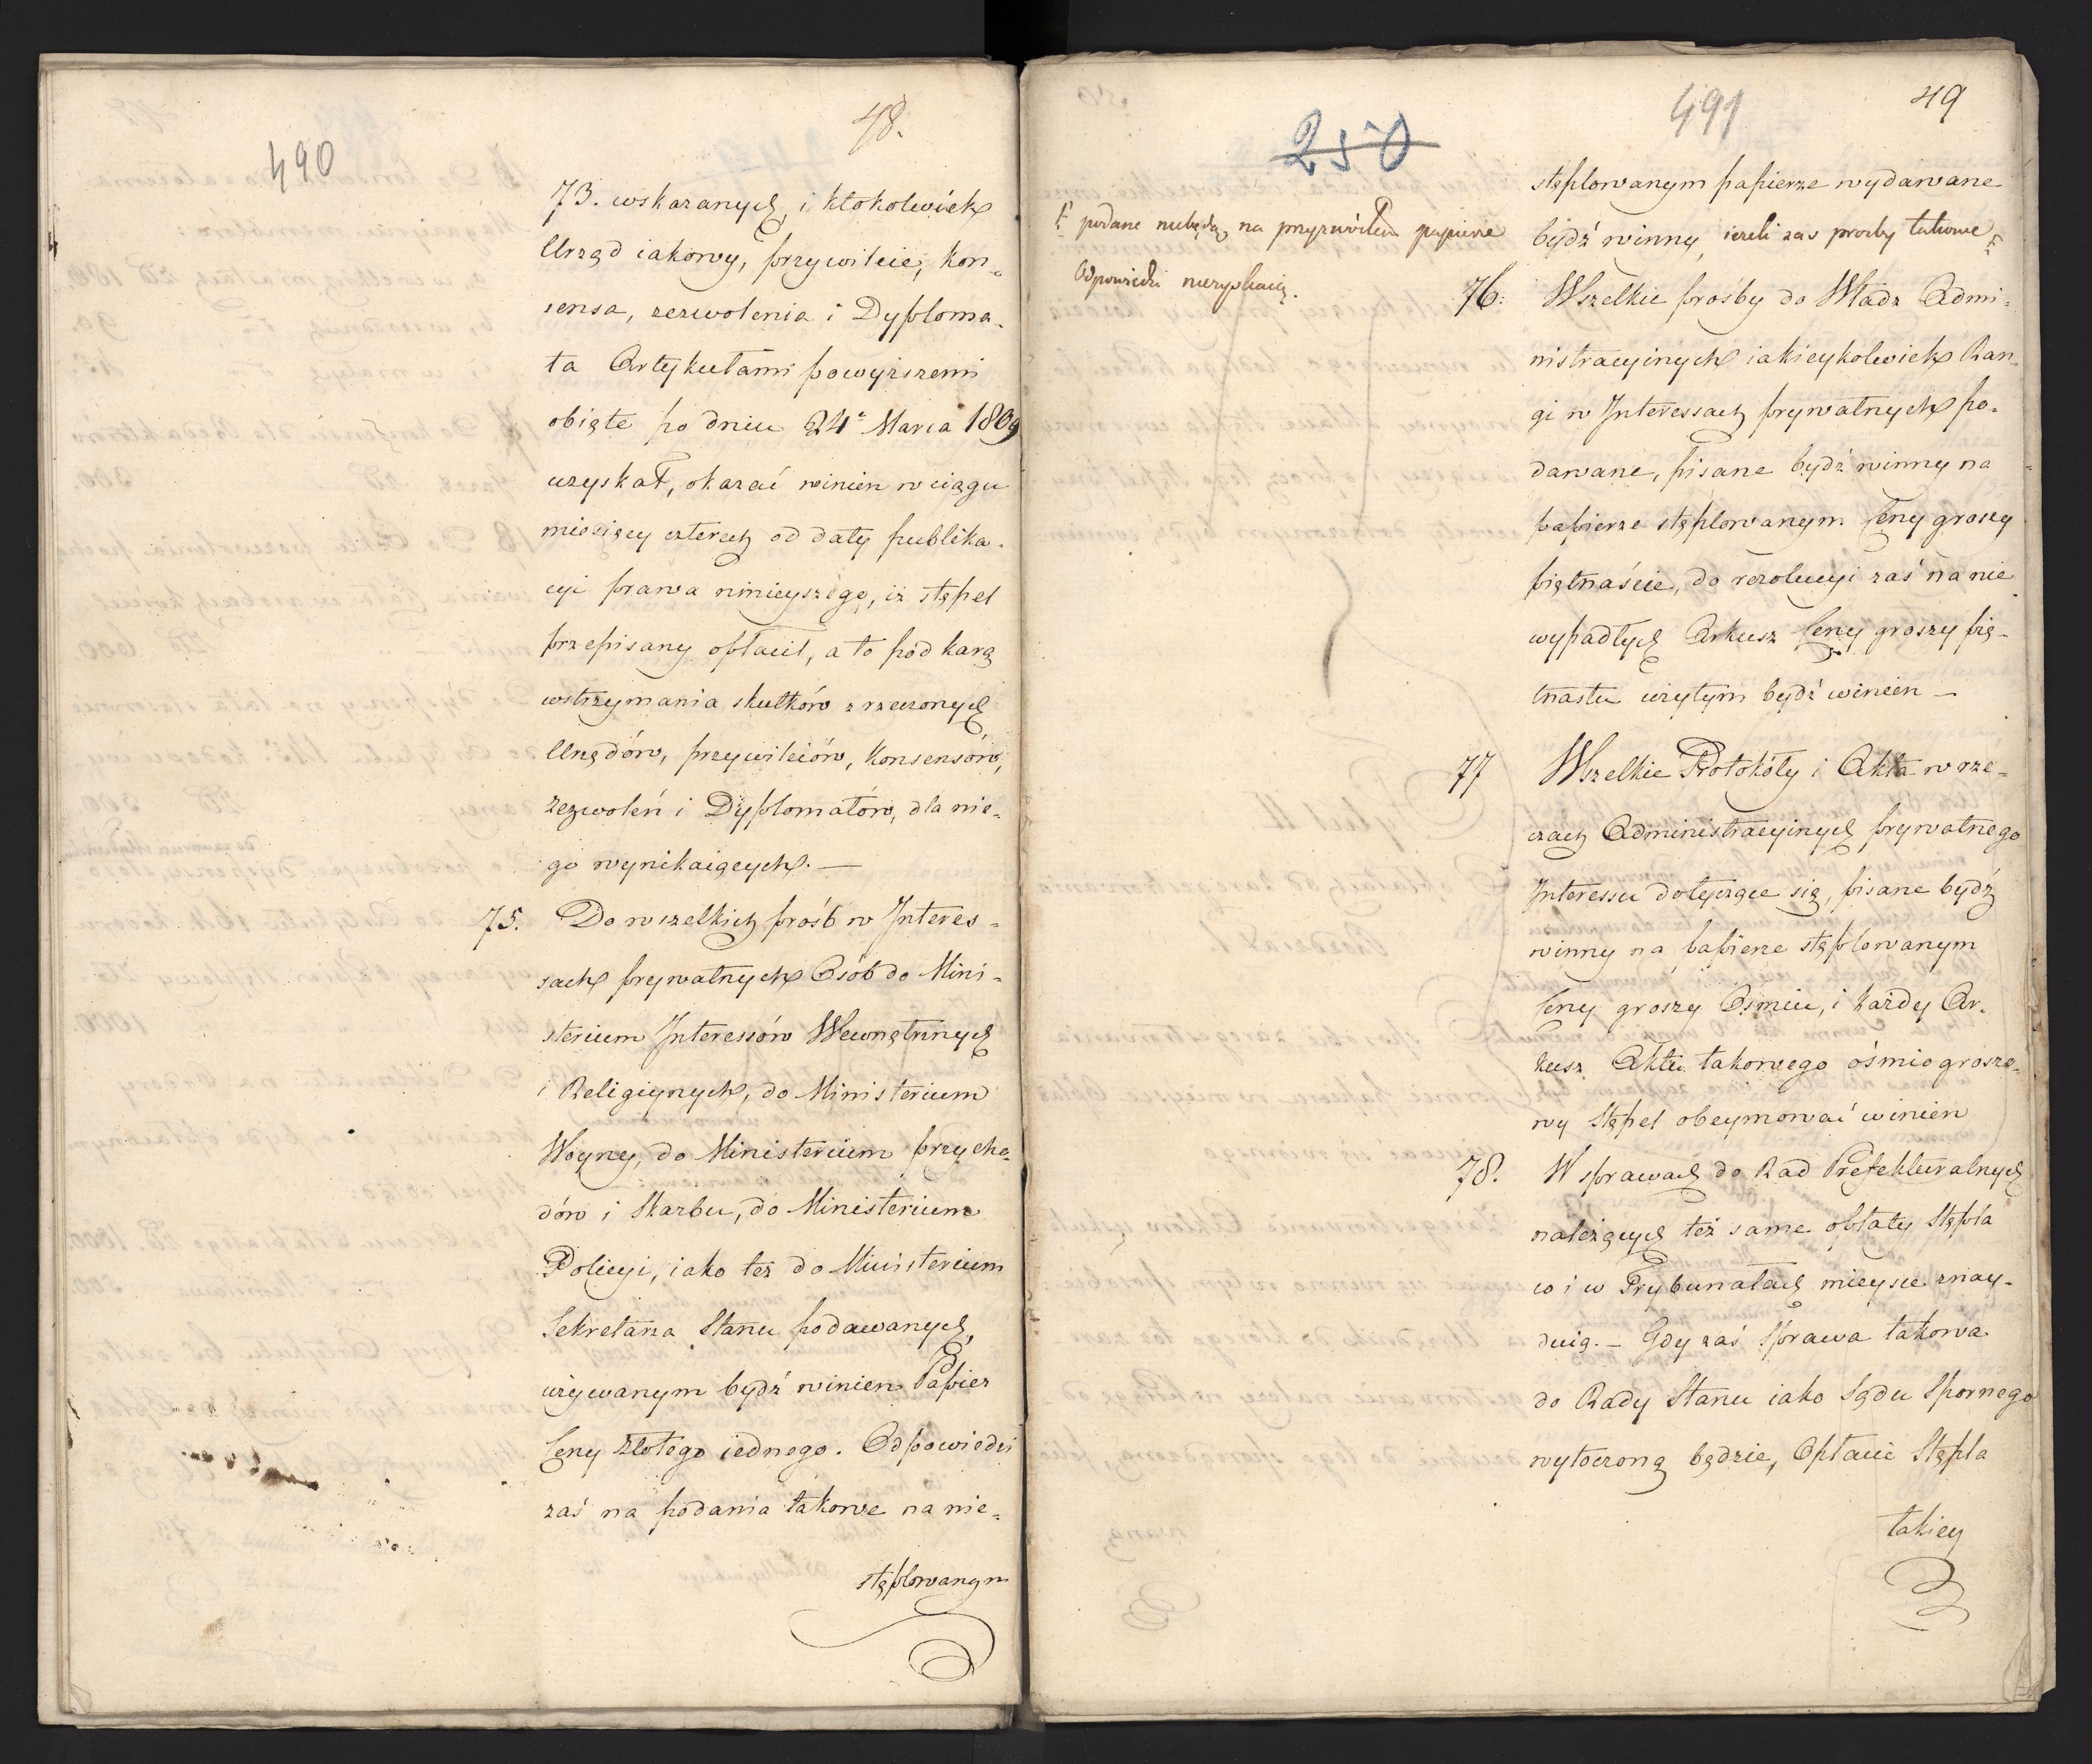 490
48.
73. wskazanych, i ktokolwiek
Urząd iakowy, przywileie, kon=
sensa, zezwolenia i Dyploma=
ta Artykułami powyższemi
obięte po dniu 24º Marca 1809
uzyskał, okazać winien w ciągu
miesięcy czterech od daty publika=
cyi prawa ninieyszego, iż stępel
przepisany opłacił, a to pod karą
wstrzymania skutków z rzeczonych
Urzędów, przywileiów, Konsensów,
zezwoleń i Dyplomatów, dla nie=
go wynikaiących. —
75. Do wszelkich próśb w Interes=
sach prywatnych Osób do Mini=
sterium Interessów Wewnętrznych
i Religiynych, do Ministerium
Woyny, do Ministerium przycho=
dów i Skarbu, do Ministerium
Policyi, iako też do Ministerium
Sekretarza Stanu podawanych,
używanym bydź winien Papier
Ceny złotego iednego. Odpowiedzi
zaś na podania takowe na nie=
stęplowanym
250
491
49
stęplowanym papierze wydawane
bydź winny, ieżeli zas prozby takowe
podane niebędą, na przyzwoitem papierze
Odpowiedzi niezyskaią.
76. Wszelkie prośby do Władz Admi=
nistracyinych iakieykolwiek Ran=
gi w Interessach prywatnych po=
dawane, pisane bydź winny na
papierze stęplowanym Ceny groszy
piętnaście, do rezolucyi zaś na nie
wypadłych Arkusz Ceny groszy pię=
tnastu użytym bydź winien —
77 Wszelkie Protokóły i Akta w rze=
czach Administracyinych prywatnego
Interessu dotyczące się, pisane bydź
winny na papierze stęplowanym
Ceny groszy Osmiu, i każdy Ar=
kusz Aktu takowego ośmiogroszo=
wy Stępel obeymować winien
78. W sprawach do Rad Prefekturalnych
należących też same opłaty Stępla
co i w Trybunałach mieysce znay=
duią. — Gdy zaś Sprawa takowa
do Rady Stanu iako Sądu Spornego
wytoczoną będzie, Opłacie Stępla
takiey